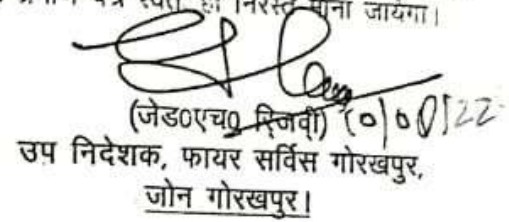 प्रमाण पत्र स्वतः ही निरस्त माना जायेगा।
(जेड०एच० रिजवी)
उप निदेशक, फायर सर्विस गोरखपुर,
जोन गोरखपुर।